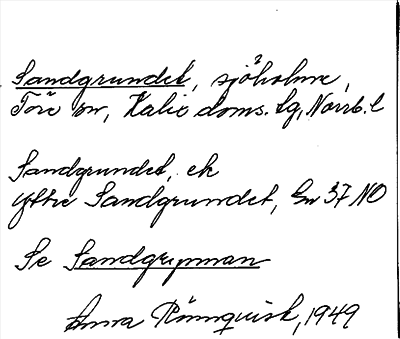 Sandgrundet, sjöholme,
Töre sn, Kalix doms. tg, Norrb. l
Sandgrundet, ek
Yttre Sandgrundet, Gn 37 NO
Se Sandgrynnan
Anna Rönnquist, 1949